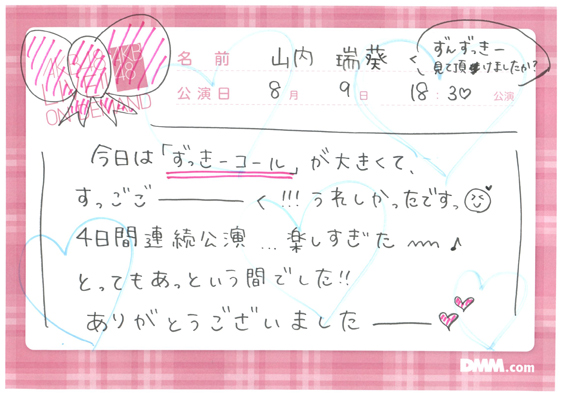 名前 山内 瑞葵
ずんずっきー
見て頂けましたか?
公演日 8月 9日 18:30♡ 公演
ON DEMAND
今日は「ずっきーコール」が大きくて、
すっごご――――く!!!うれしかったですっ
4日間連続公演...楽しすぎた〰♪
とってもあっという間でした!!
ありがとうございました――
DMM.com